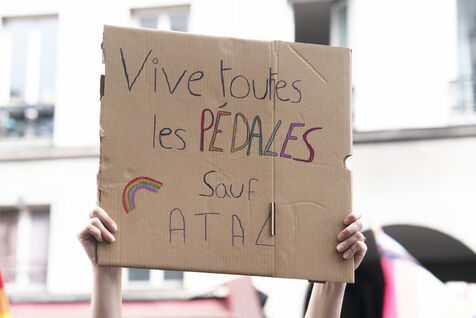 Vive toutes
les PÉDALES
Sauf
ATAL